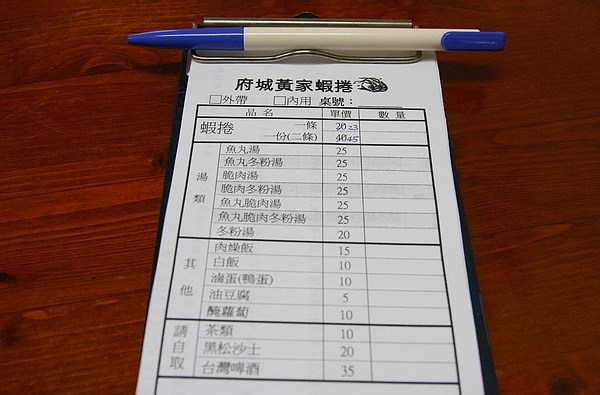 府城黃家蝦捲
□外帶 □內用 桌號：
品名 單價 數量
蝦捲 一條 20 23
一份(二條) 40 45
湯類
魚丸湯 25
魚丸冬粉湯 25
脆肉湯 25
脆肉冬粉湯 25
魚丸脆肉湯 25
魚丸脆肉冬粉湯 25
冬粉湯 20
其他
肉燥飯 15
白飯 10
滷蛋(鴨蛋) 10
油豆腐 5
醃蘿蔔 10
請自取
茶類 10
黑松沙士 20
台灣啤酒 35